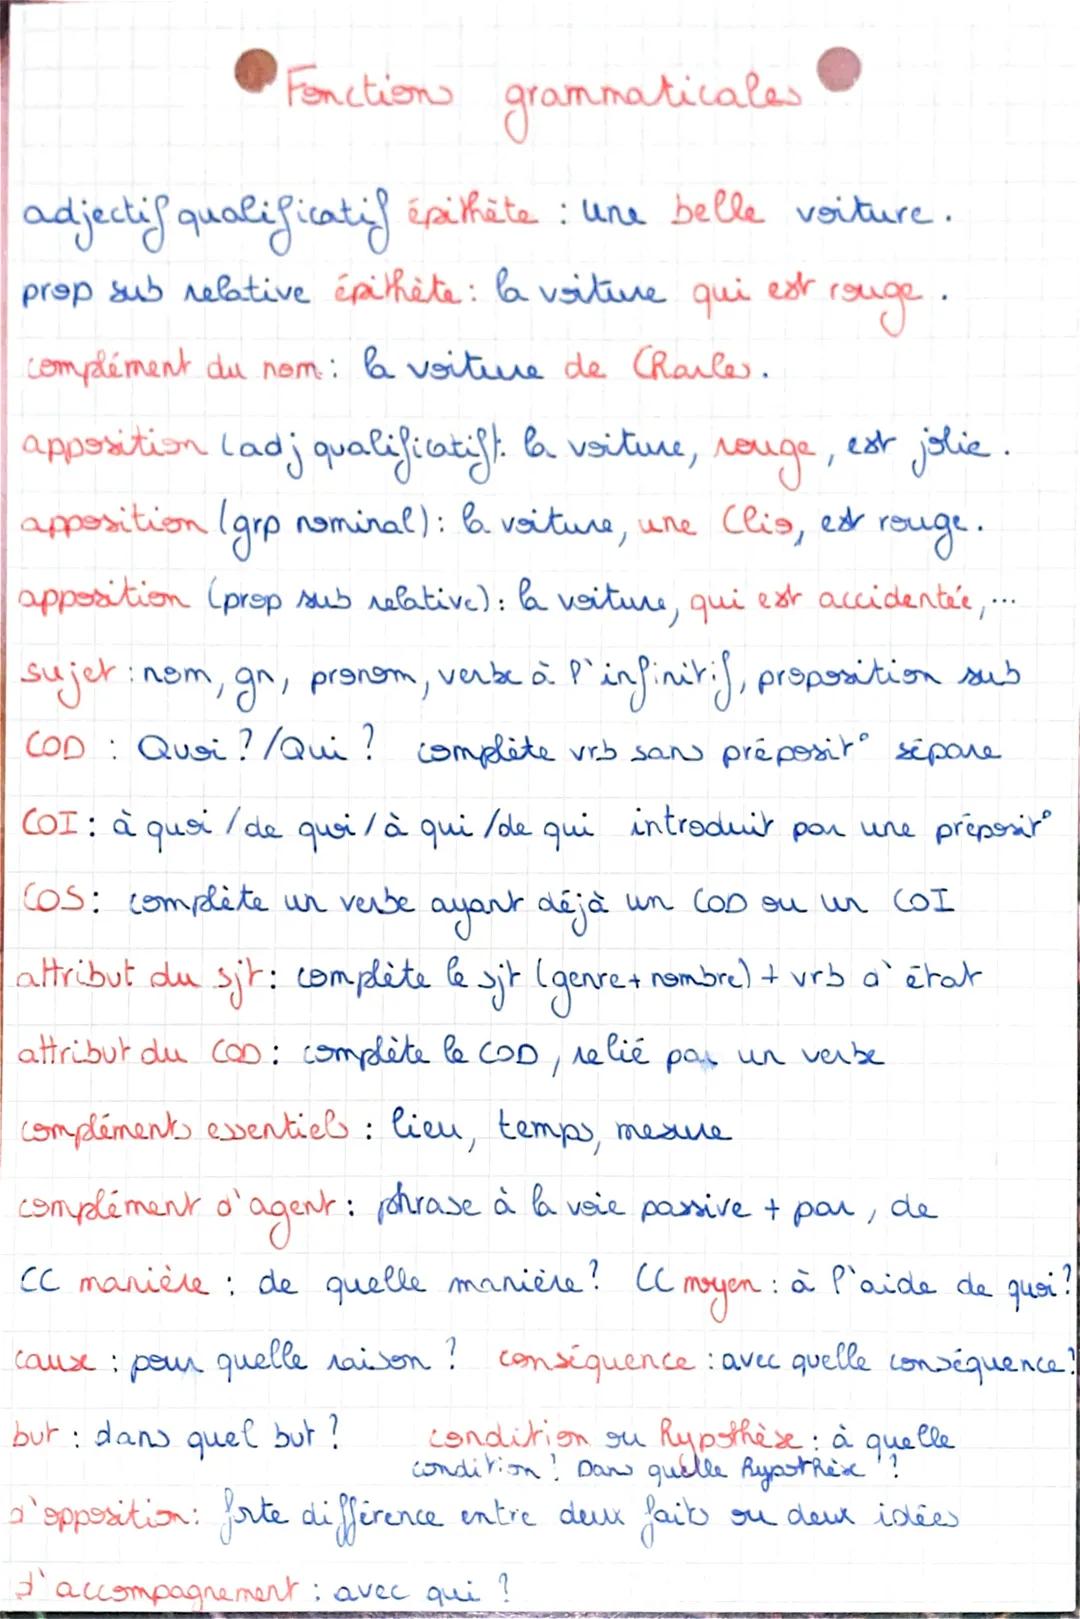 Fonctions grammaticales
adjectif qualificatif épithète : une belle voiture.
prop sub relative épithète : la voiture qui est rouge.
complément du nom : la voiture de Charles.
apposition (adj qualificatif): la voiture, rouge, est jolie.
apposition (grp nominal) : la voiture, une Clio, est rouge.
apposition (prop sub relative) : la voiture, qui est accidentée,...
sujet : nom, gn, pronom, verbe à l'infinitif, proposition sub
COD : Quoi ? / Qui ? complète vrb sans préposit° sépare
COI : à quoi / de quoi / à qui / de qui introduit par une préposit°
COS : complète un verbe ayant déjà un COD ou un COI
attribut du sjt : complète le sjt (genre + nombre) + vrb d'état
attribut du COD : complète le COD, relié par un verbe
compléments essentiels : lieu, temps, mesure
complément d'agent : phrase à la voie passive + par, de
CC manière : de quelle manière ? CC moyen : à l'aide de quoi ?
cause : pour quelle raison ? conséquence : avec quelle conséquence ?
but : dans quel but ? condition ou hypothèse : à quelle
condition ? Dans quelle hypothèse ?
d'opposition : forte différence entre deux faits ou deux idées
d'accompagnement : avec qui ?